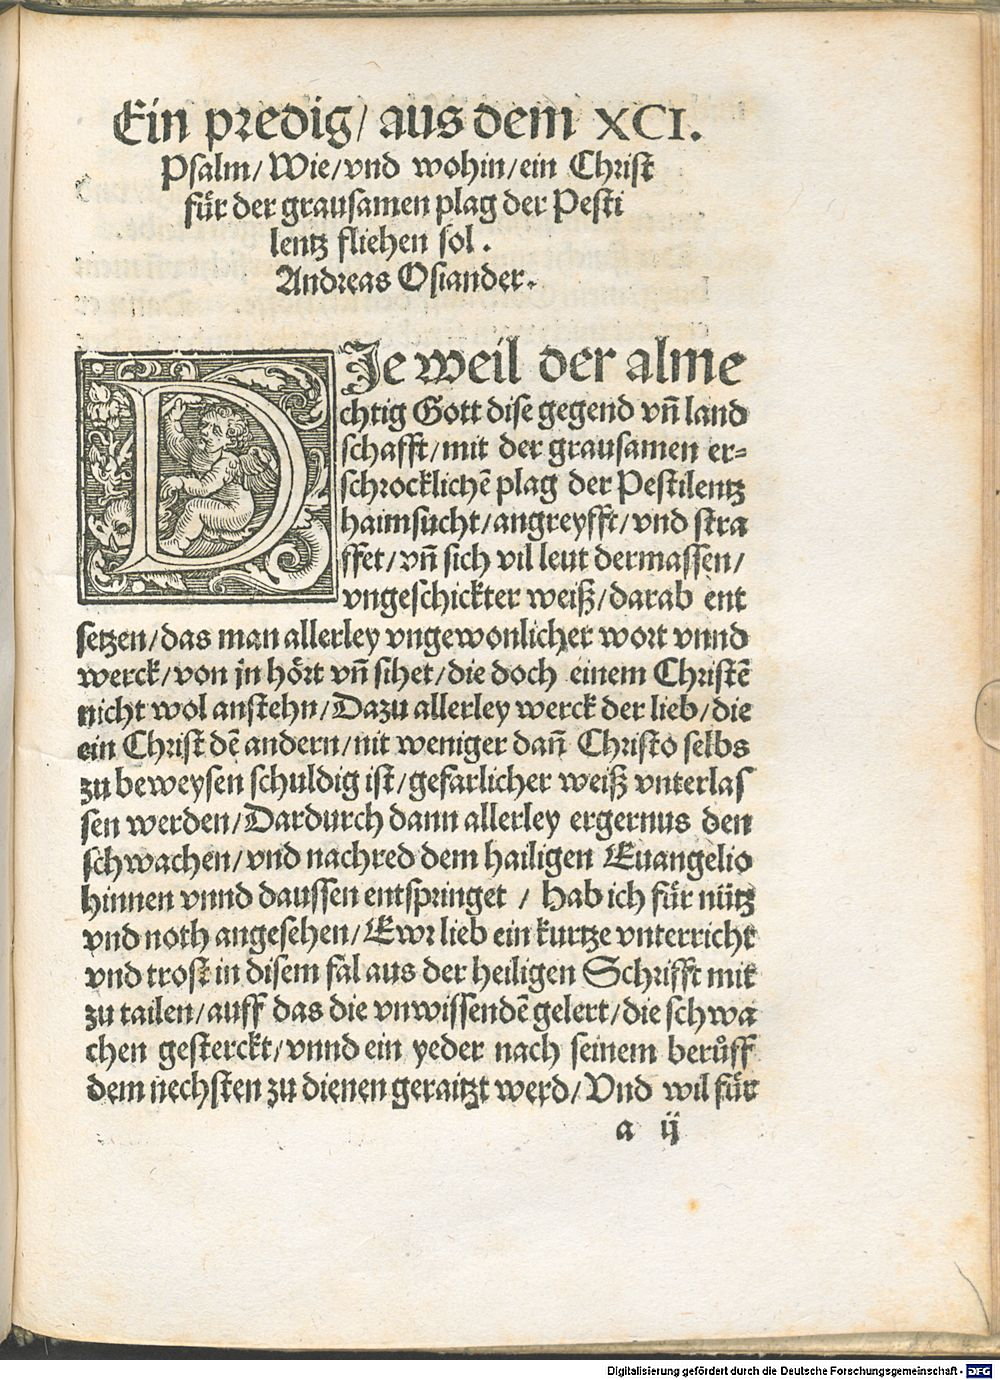 Ein predig/ aus dem XCI.
Psalm/ Wie/ vnd wohin/ ein Christ
für der grausamen plag der Pesti
lentz fliehen sol.
Andreas Osiander.
DJe weil der alme
chtig Gott dise gegend vñ land
schafft/ mit der grausamen er⸗
schrocklichẽ plag der Pestilentz
haimsucht/ angreyfft/ vnd stra
ffet/ vñ sich vil leut dermassen/
vngeschickter weiß/ darab ent
setzen/ das man allerley vngewonlicher wort vnnd
werck/ von jn hört vñ sihet/ die doch einem Christẽ
nicht wol anstehn/ Dazu allerley werck der lieb/ die
ein Christ dẽ andern/ nit weniger dañ Christo selbs
zu beweysen schuldig ist/ gefarlicher weiß vnterlas
sen werden/ Dardurch dann allerley ergernus den
schwachen/ vnd nachred dem hailigen Euangelio
hinnen vnnd daussen entspringet / Hab ich für nütz
vnd noth angesehen/ Ewr lieb ein kurtze vnterricht
vnd trost in disem fal aus der heiligen Schrifft mit
zu tailen/ auff das die vnwissendẽ gelert/ die schwa
chen gesterckt/ vnnd ein yeder nach seinem berůff
dem nechsten zu dienen geraitzt werd/ Vnd wil für
a ij
Digitalisierung gefördert durch die Deutsche Forschungsgemeinschaft - DFG